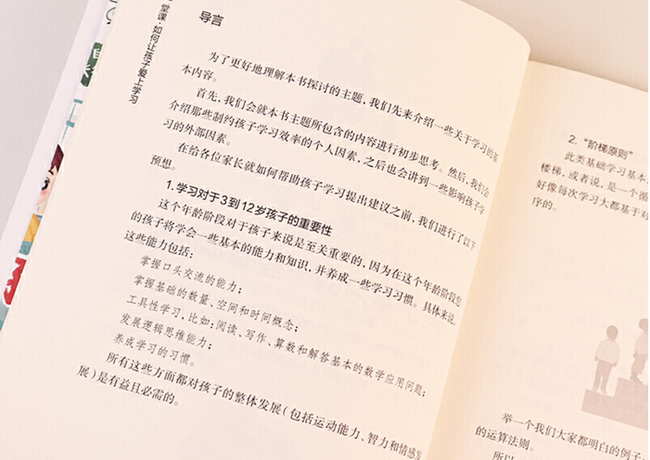 堂课·如何让孩子爱上学习
导言
为了更好地理解本书探讨的主题，我们先来介绍一些关于学习的基
本内容。
首先，我们会就本书主题所包含的内容进行初步思考。然后，我们会
介绍那些制约孩子学习效率的个人因素，之后也会讲到一些影响孩子学
习的外部因素。
在给各位家长就如何帮助孩子学习提出建议之前，我们进行了以下
预想。
1.学习对于3到12岁孩子的重要性
这个年龄阶段对于孩子来说是至关重要的，因为在这个年龄阶段里
的孩子将学会一些基本的能力和知识，并养成一些学习习惯。具体来说，
这些能力包括：
掌握口头交流的能力；
掌握基础的数量、空间和时间概念；
工具性学习，比如：阅读、写作、算数和解答基本的数学应用问题；
发展逻辑思维能力；
养成学习的习惯。
所有这些方面都对孩子的整体发展（包括运动能力、智力和情感发
展）是有益且必需的。
2.“阶梯原则”
此类基础学习基本
楼梯，或者说，是一个循
好像每次学习大都基于对
序的。
举一个我们大家都明白的例子
的运算法则。
所以